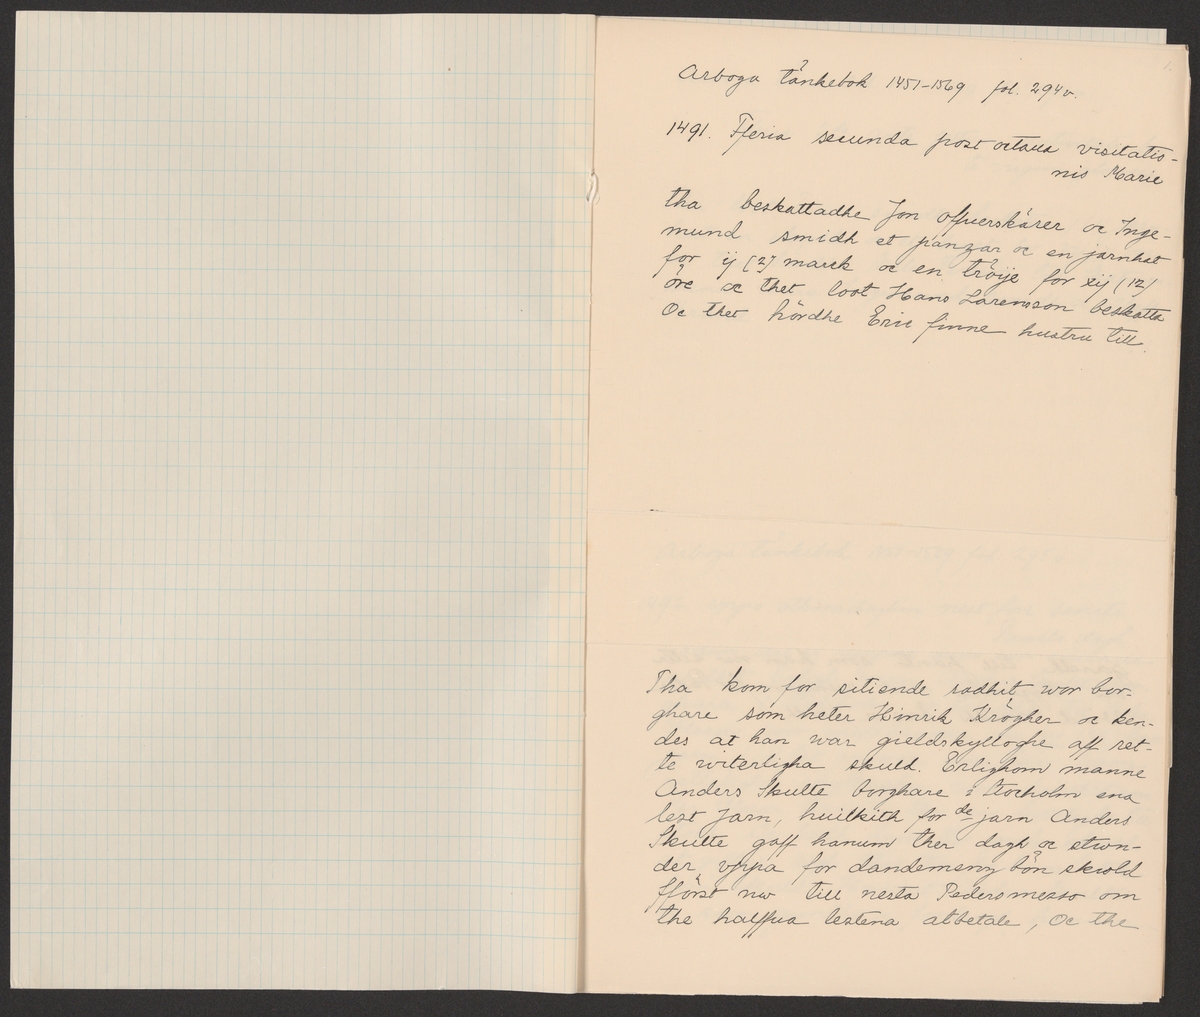 Arboga tänkebok 1451-1569 fol. 294v.
1491. Fferia secunda post octaua visitatio-
nis Marie
tha beskattadhe Jon offuerskärer oc Inge-
mund smidh et panzar oc en jarnhat
for ij (2) marck oc en tröije for xij (12)
öre oc thet loot Hans Larensson beskatta
Oc thet hördhe Eric finne hustru till.
Tha kom for sitiende radhit wor bor-
ghare som heter Hinrik Krögher oc ken-
des at han war gieldskylloghe aff ret-
te witerligha skuld. Erlighom manne
Anders Skulte borghare i Stocholm ena
lest Jarn, huilkith for de jarn Anders
Skulte gaff hanum ther dagh oc stwn-
der vppa for dandemenz bön skwld
fförst nw till nesta Pedersmesso om
the halffua lestena atbetale, Oc the